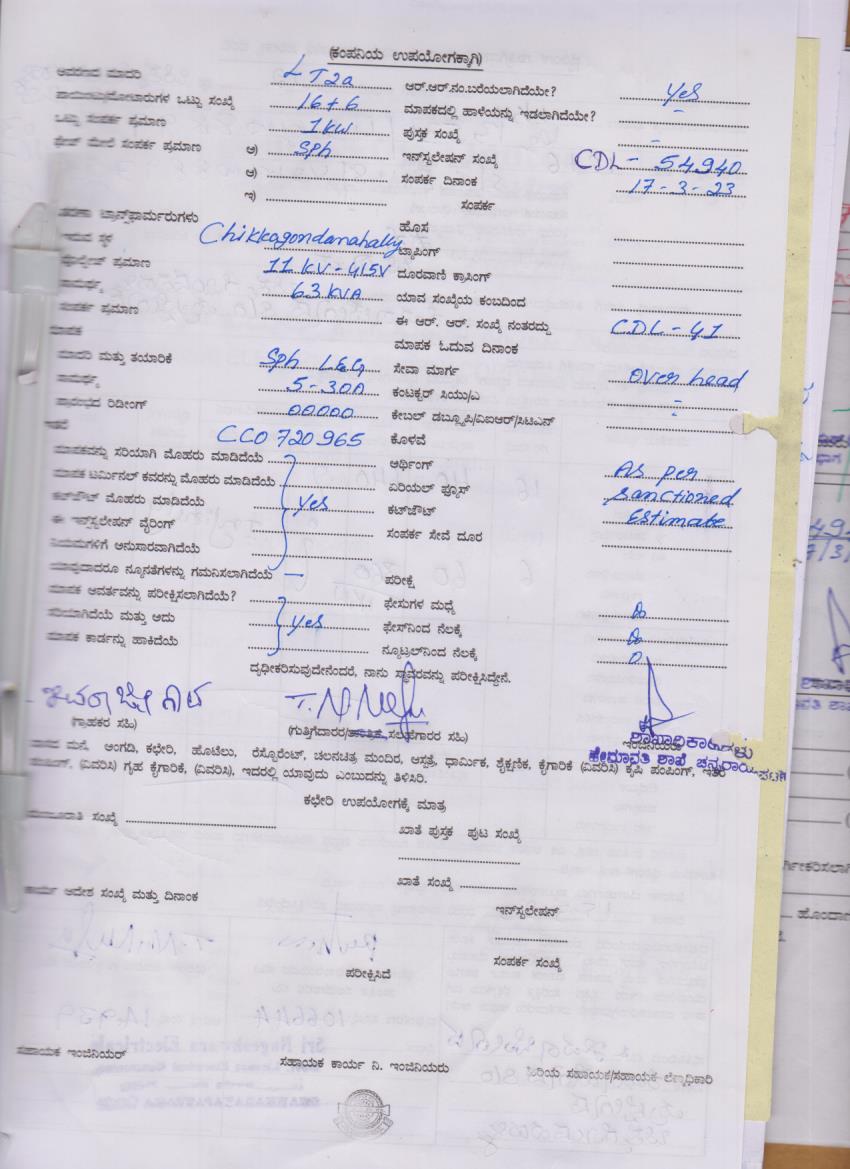 (ಕಂಪನಿಯ ಉಪಯೋಗಕ್ಕಾಗಿ)
ಆವರಣದ ಮಾದರಿ LT2a ಆರ್.ಆರ್.ನಂ.ಬರೆಯಲಾಗಿದೆಯೇ? Yes
ಪಾಯಿಂಟು/ಮೋಟಾರುಗಳ ಒಟ್ಟು ಸಂಖ್ಯೆ 16+6 ಮಾಪಕದಲ್ಲಿ ಹಾಳೆಯನ್ನು ಇಡಲಾಗಿದೆಯೇ? -
ಒಟ್ಟು ಸಂಪರ್ಕ ಪ್ರಮಾಣ 1kw ಪುಸ್ತಕ ಸಂಖ್ಯೆ -
ಫೇಜ್ ಮೇಲೆ ಸಂಪರ್ಕ ಪ್ರಮಾಣ ಅ) Sph ಇನ್‌ಸ್ಟಲೇಷನ್ ಸಂಖ್ಯೆ CDL - 54940
ಆ) ಸಂಪರ್ಕ ದಿನಾಂಕ 17-3-23
ಇ) ಸಂಪರ್ಕ
ಟ್ರಾನ್ಸ್‌ಫಾರ್ಮರುಗಳು ಹೊಸ
ಇರುವ ಸ್ಥಳ Chikkagondanahally ಟ್ಯಾಪಿಂಗ್
ವೋಲ್ಟೇಜ್ ಪ್ರಮಾಣ 11 KV - 415V ದೂರವಾಣಿ ಕ್ರಾಸಿಂಗ್
ಸಾಮರ್ಥ್ಯ 63 KVA ಯಾವ ಸಂಖ್ಯೆಯ ಕಂಬದಿಂದ
ಸಂಪರ್ಕ ಪ್ರಮಾಣ ಈ ಆರ್. ಆರ್. ಸಂಖ್ಯೆ ನಂತರದ್ದು CDL - 41
ಮಾಪಕ ಮಾಪಕ ಓದುವ ದಿನಾಂಕ
ಮಾದರಿ ಮತ್ತು ತಯಾರಿಕೆ Sph L&G ಸೇವಾ ಮಾರ್ಗ Over head
ಸಾಮರ್ಥ್ಯ 5-30A ಕಂಟಕ್ಟರ್ ಸಿಯು/ಎ -
ಪ್ರಾರಂಭದ ರಿಡೀಂಗ್ 00000 ಕೇಬಲ್ ಡಬ್ಲ್ಯೂಪಿ/ವಿಐಆರ್/ಸಿಟಿಎಸ್ -
CCO 720965 ಕೊಳವೆ
ಮಾಪಕವನ್ನು ಸರಿಯಾಗಿ ಮೊಹರು ಮಾಡಿದೆಯೆ ಅರ್ಥಿಂಗ್ As per
ಮಾಪಕ ಟರ್ಮಿನಲ್ ಕವರನ್ನು ಮೊಹರು ಮಾಡಿದೆಯೆ ಏರಿಯಲ್ ಫ್ಯೂಸ್ Sanctioned
ಕಟ್‌ಔಟ್ ಮೊಹರು ಮಾಡಿದೆಯೆ Yes ಕಟ್‌ಔಟ್ Estimate
ಈ ಇನ್‌ಸ್ಟಲೇಷನ್ ವೈರಿಂಗ್ ಸಂಪರ್ಕ ಸೇವೆ ದೂರ
ನಿಯಮಗಳಿಗೆ ಅನುಸಾರವಾಗಿದೆಯೆ
ಯಾವುದಾದರೂ ನ್ಯೂನತೆಗಳನ್ನು ಗಮನಿಸಲಾಗಿದೆಯೆ — ಪರೀಕ್ಷೆ
ಮಾಪಕ ಆವರ್ತವನ್ನು ಪರೀಕ್ಷಿಸಲಾಗಿದೆಯೆ? ಫೇಸುಗಳ ಮಧ್ಯೆ
ಸರಿಯಾಗಿದೆಯೆ ಮತ್ತು ಅದು Yes ಫೇಸ್‌ನಿಂದ ನೆಲಕ್ಕೆ
ಮಾಪಕ ಕಾರ್ಡನ್ನು ಹಾಕಿದೆಯೆ ನ್ಯೂಟ್ರಲ್‌ನಿಂದ ನೆಲಕ್ಕೆ 0
ದೃಢೀಕರಿಸುವುದೇನೆಂದರೆ, ನಾನು ಸ್ಥಾವರವನ್ನು ಪರೀಕ್ಷಿಸಿದ್ದೇನೆ.
(ಗ್ರಾಹಕರ ಸಹಿ) (ಗುತ್ತಿಗೆದಾರರ/ತಾಂತ್ರಿಕ ಸಲಹೆಗಾರರ ಸಹಿ) ಇಂಜಿನಿಯರು
ಶಾಖಾಧಿಕಾರಿಗಳು
ಹೇಮಾವತಿ ಶಾಖೆ ಚನ್ನರಾಯಪಟ್ಟಣ
ಮನೆ, ಅಂಗಡಿ, ಕಛೇರಿ, ಹೊಟೆಲು, ರೆಸ್ಟೊರೆಂಟ್, ಚಲನಚಿತ್ರ ಮಂದಿರ, ಆಸ್ಪತ್ರೆ, ಧಾರ್ಮಿಕ, ಶೈಕ್ಷಣಿಕ, ಕೈಗಾರಿಕೆ (ವಿವರಿಸಿ) ಕೃಷಿ ಪಂಪಿಂಗ್, ಇತರೆ
(ವಿವರಿಸಿ) ಗೃಹ ಕೈಗಾರಿಕೆ, (ವಿವರಿಸಿ), ಇದರಲ್ಲಿ ಯಾವುದು ಎಂಬುದನ್ನು ತಿಳಿಸಿರಿ.
ಕಛೇರಿ ಉಪಯೋಗಕ್ಕೆ ಮಾತ್ರ
ಮಂಜೂರಾತಿ ಸಂಖ್ಯೆ ಖಾತೆ ಪುಸ್ತಕ ಪುಟ ಸಂಖ್ಯೆ
ಖಾತೆ ಸಂಖ್ಯೆ
ಕಾರ್ಯ ಆದೇಶ ಸಂಖ್ಯೆ ಮತ್ತು ದಿನಾಂಕ ಇನ್‌ಸ್ಟಲೇಷನ್
ಸಂಪರ್ಕ ಸಂಖ್ಯೆ
ಪರೀಕ್ಷಿಸಿದೆ
ಸಹಾಯಕ ಇಂಜಿನಿಯರ್ ಸಹಾಯಕ ಕಾರ್ಯ ನಿ. ಇಂಜಿನಿಯರು ಹಿರಿಯ ಸಹಾಯಕ/ಸಹಾಯಕ ಲೆಕ್ಕಾಧಿಕಾರಿ